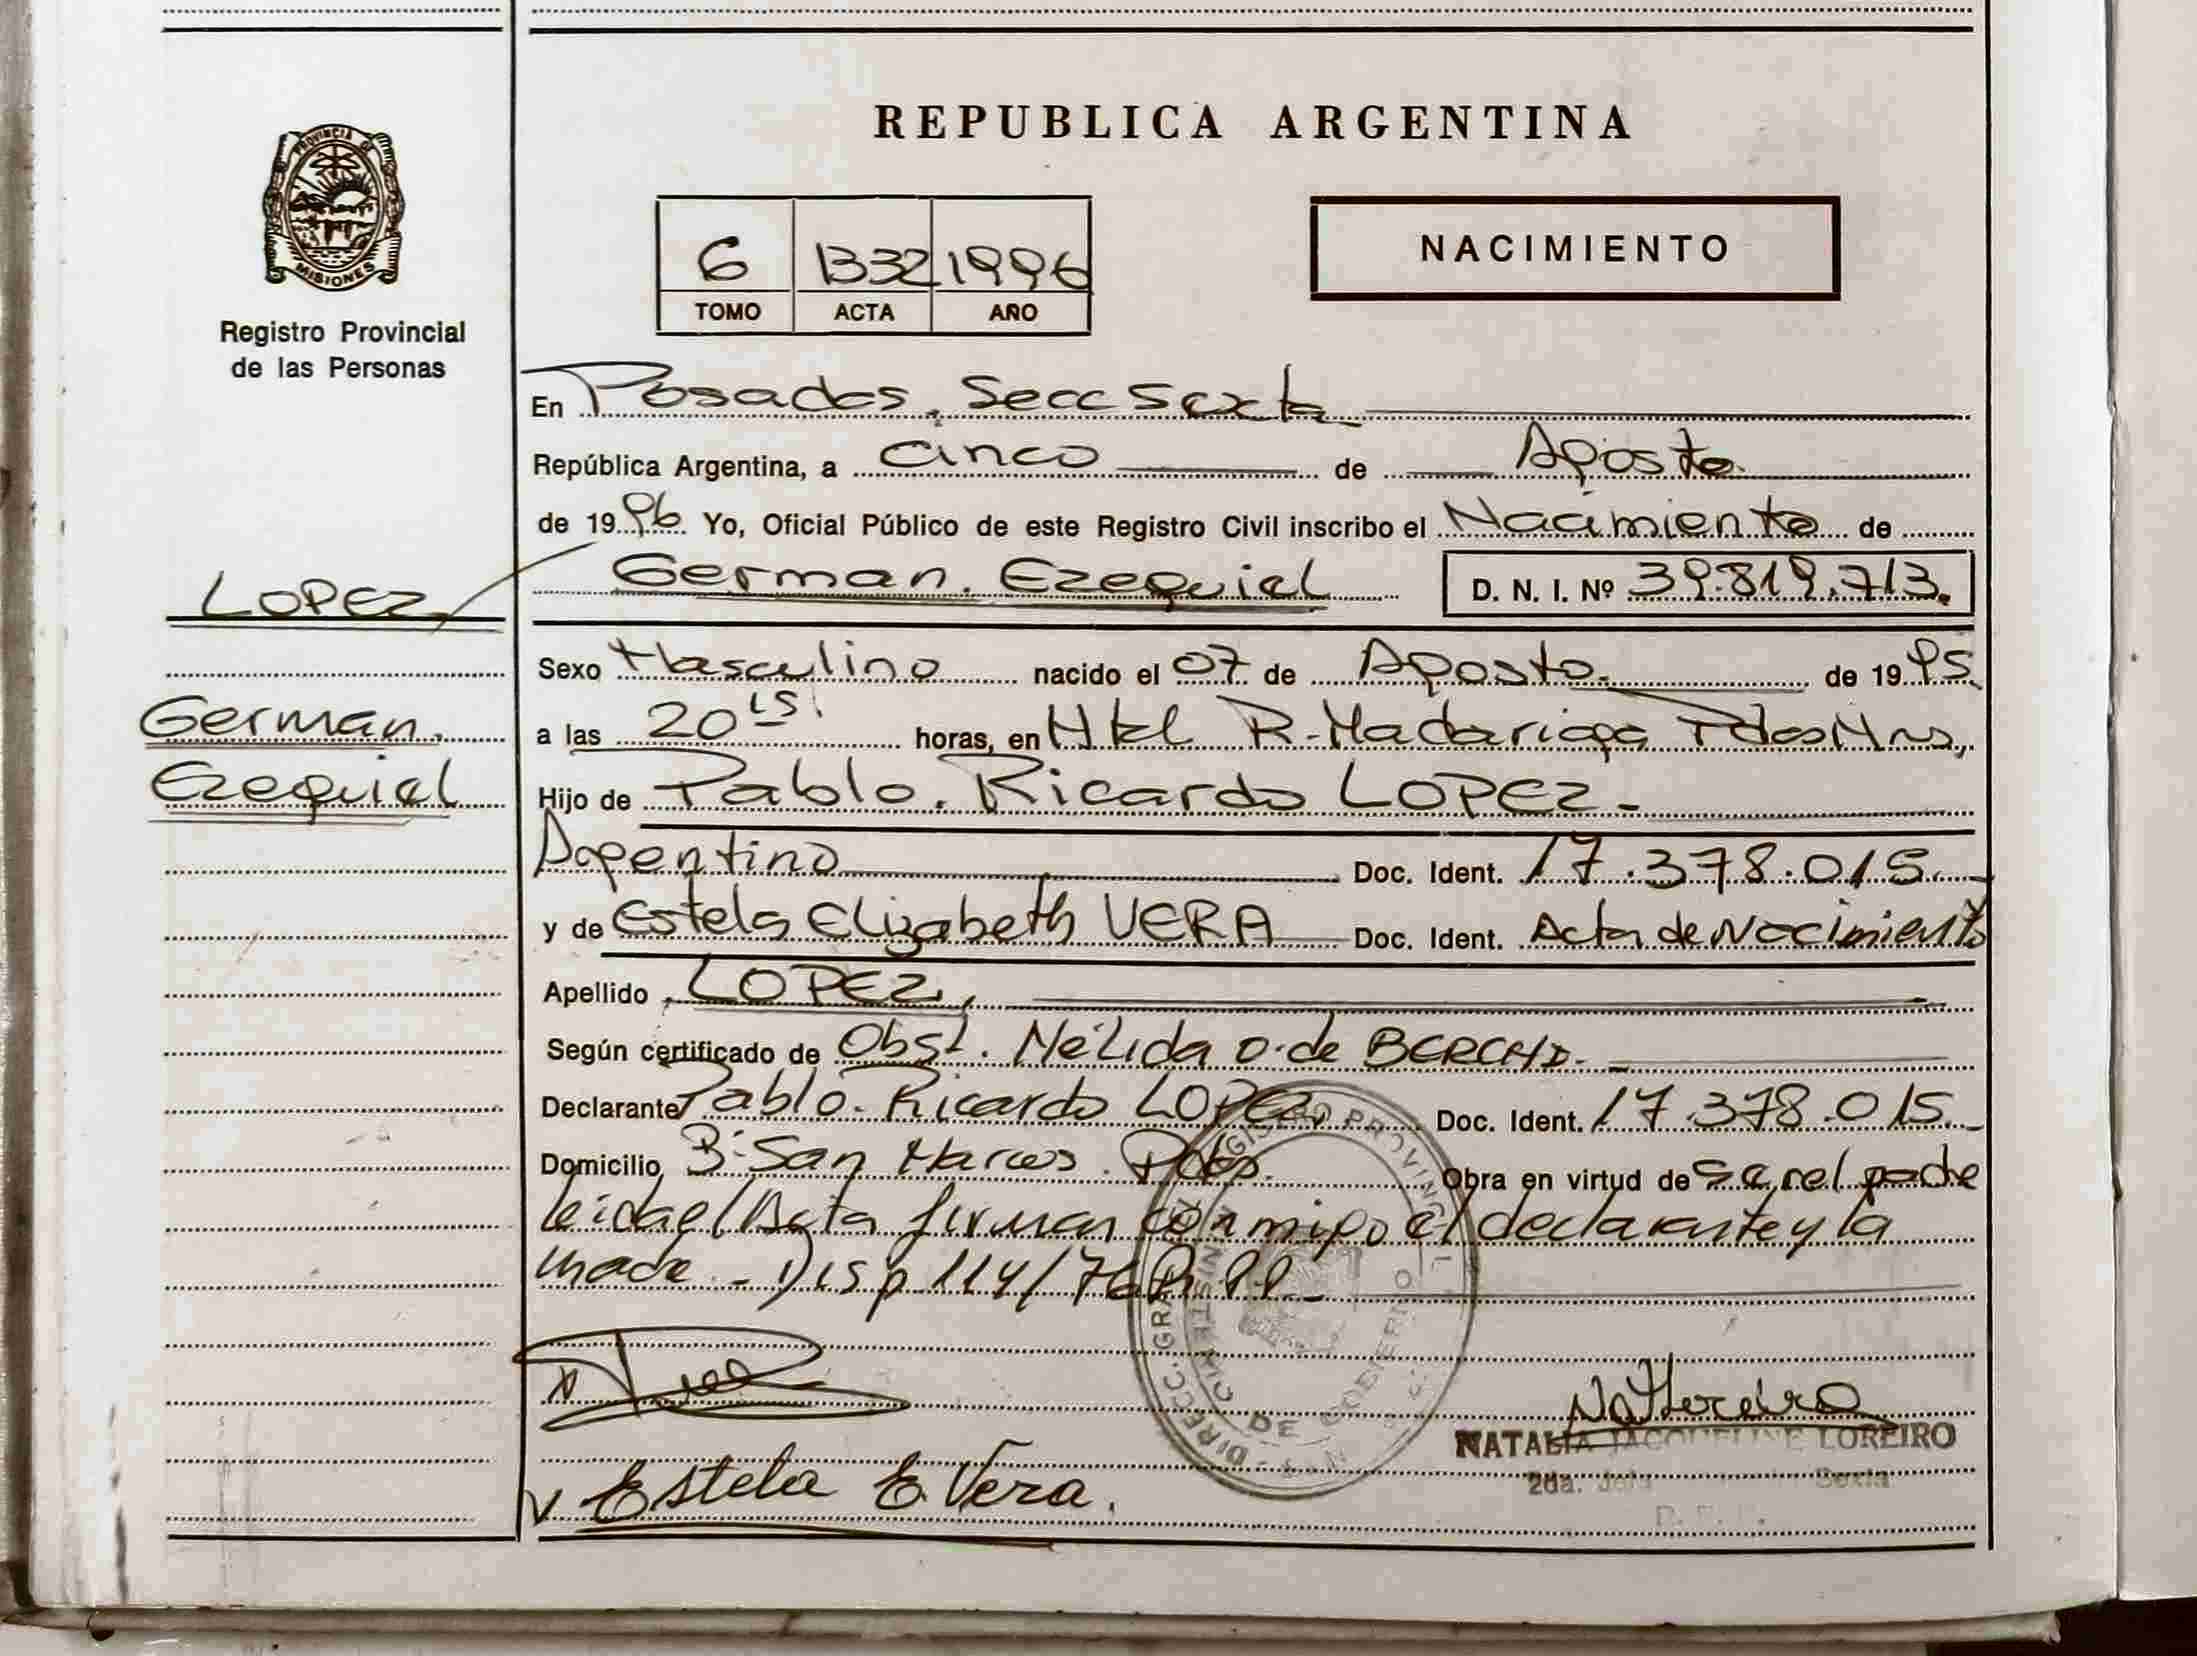 REPUBLICA ARGENTINA
PROVINCIA DE
MISIONES
Registro Provincial
de las Personas
6 1332 1996
TOMO ACTA AÑO
NACIMIENTO
En Posadas, Secc Sexta
República Argentina, a cinco de Agosto
de 1996 Yo, Oficial Público de este Registro Civil inscribo el Nacimiento de
German. Ezequiel D. N. I. Nº 39.819.713.
LOPEZ
German.
Ezequiel
Sexo Masculino nacido el 07 de Agosto. de 1995
a las 20 15 horas, en Htal R. Madariaga Pdas Mns,
Hijo de Pablo. Ricardo LOPEZ-
Argentino Doc. Ident. 17.378.015.
y de Estela Elizabeth VERA Doc. Ident. Acta de Nacimiento
Apellido LOPEZ,
Según certificado de Obst. Nélida O. de
Declarante Pablo. Ricardo LOPEZ, Doc. Ident. 17.378.015.
Domicilio B: San Marcos. Pdas. Obra en virtud de ser el padre
leida el Acta firman conmigo el declarante y la
madre - Disp 114/76
REGISTRO PROVINCIAL
MINISTERIO DE GOBIERNO
Estela E. Vera.
NATALIA JACQUELINE LOREIRO
2da. Sexta